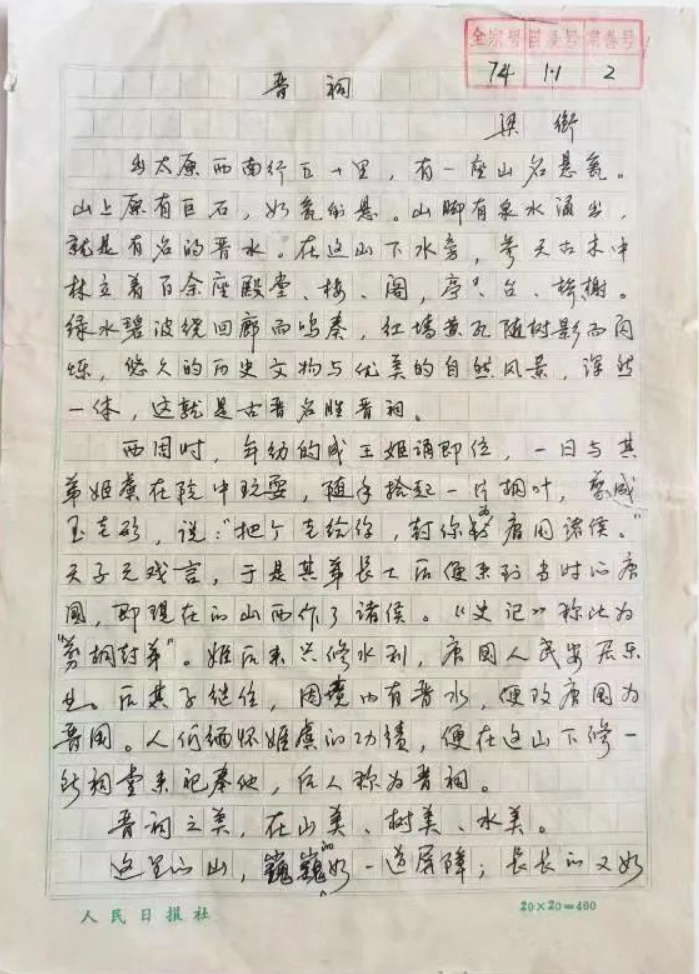 全宗号 目录号 案卷号
74 1·1 2
晋祠
梁衡
出太原西南行五十里，有一座山名悬瓮。
山上原有巨石，如瓮倒悬。山脚有泉水涌出，
就是有名的晋水。在这山下水旁，参天古木中
林立着百余座殿堂、楼、阁，亭、台、桥榭。
绿水碧波绕回廊而鸣奏，红墙黄瓦随树影而闪
烁，悠久的历史文物与优美的自然风景，浑然
一体，这就是古晋名胜晋祠。
西周时，年幼的成王姬诵即位，一日与其
弟姬虞在院中玩耍，随手拾起一片桐叶，剪成
玉圭形，说：“把个圭给你，封你为唐国诸侯。”
天子无戏言，于是其弟长大后便来到当时的唐
国，即现在的山西作了诸侯。《史记》称此为
“剪桐封弟”。姬后来兴修水利，唐国人民安居乐
业。后其子继位，因境内有晋水，便改唐国为
晋国。人们缅怀姬虞的功绩，便在这山下修一
所祠堂来祀奉他，后人称为晋祠。
晋祠之美，在山美、树美、水美。
这里的山，巍巍的如一道屏障；长长的又如
人民日报社
20×20=400